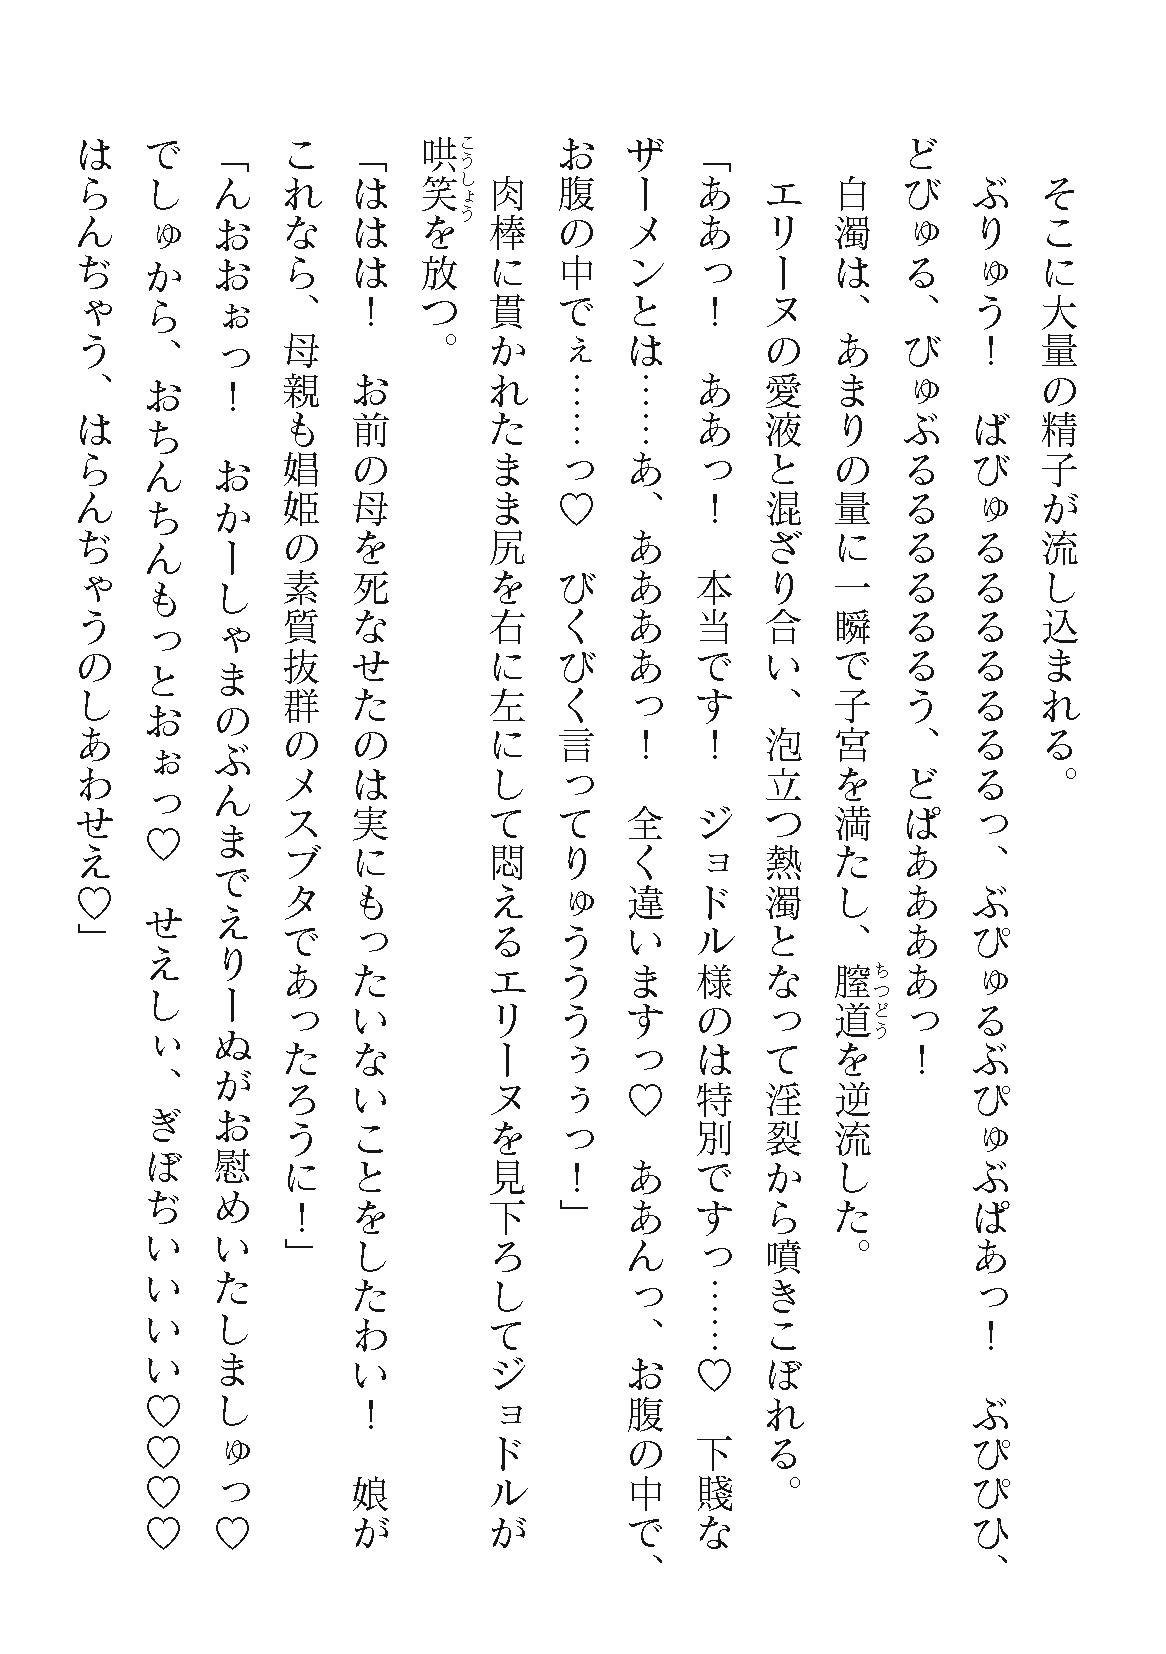 そこに大量の精子が流し込まれる。
ぶりゅう！　ばびゅるるるるるるっ、ぶぴゅるぶぴゅぶぱあっ！　ぶぴぴひ、
どびゅる、びゅぶるるるるるるう、どぱああああっ！
白濁は、あまりの量に一瞬で子宮を満たし、膣道を逆流した。
エリーヌの愛液と混ざり合い、泡立つ熱濁となって淫裂から噴きこぼれる。
「ああっ！　ああっ！　本当です！　ジョドル様のは特別ですっ……♡　下賤な
ザーメンとは……あ、ああああっ！　全く違いますっ♡　ああんっ、お腹の中で、
お腹の中でぇ……っ♡　びくびく言ってりゅうううぅぅっ！」
肉棒に貫かれたまま尻を右に左にして悶えるエリーヌを見下ろしてジョドルが
哄笑を放つ。
「ははは！　お前の母を死なせたのは実にもったいないことをしたわい！　娘が
これなら、母親も娼姫の素質抜群のメスブタであったろうに！」
「んおおぉっ！　おかーしゃまのぶんまでえりーぬがお慰めいたしましゅっ♡
でしゅから、おちんちんもっとおぉっ♡　せえしぃ、ぎぼぢいいいい♡♡♡♡
はらんぢゃう、はらんぢゃうのしあわせえ♡」